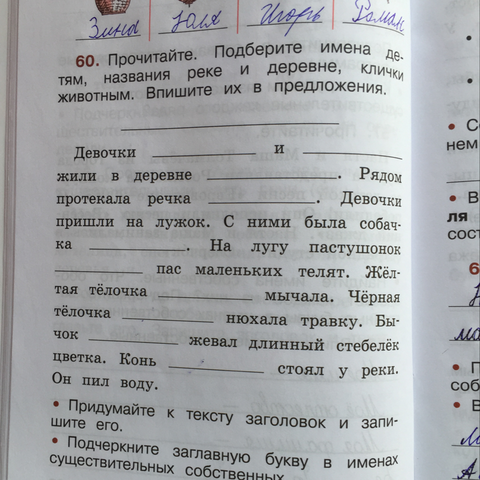 Зины Юля Игорь Роман
60. Прочитайте. Подберите имена де-
тям, названия реке и деревне, клички
животным. Впишите их в предложения.
Девочки и
жили в деревне . Рядом
протекала речка . Девочки
пришли на лужок. С ними была собач-
ка . На лугу пастушонок
пас маленьких телят. Жёл-
тая тёлочка мычала. Чёрная
тёлочка нюхала травку. Бы-
чок жевал длинный стебелёк
цветка. Конь стоял у реки.
Он пил воду.
• Придумайте к тексту заголовок и запи-
шите его.
• Подчеркните заглавную букву в именах
существительных собственных.